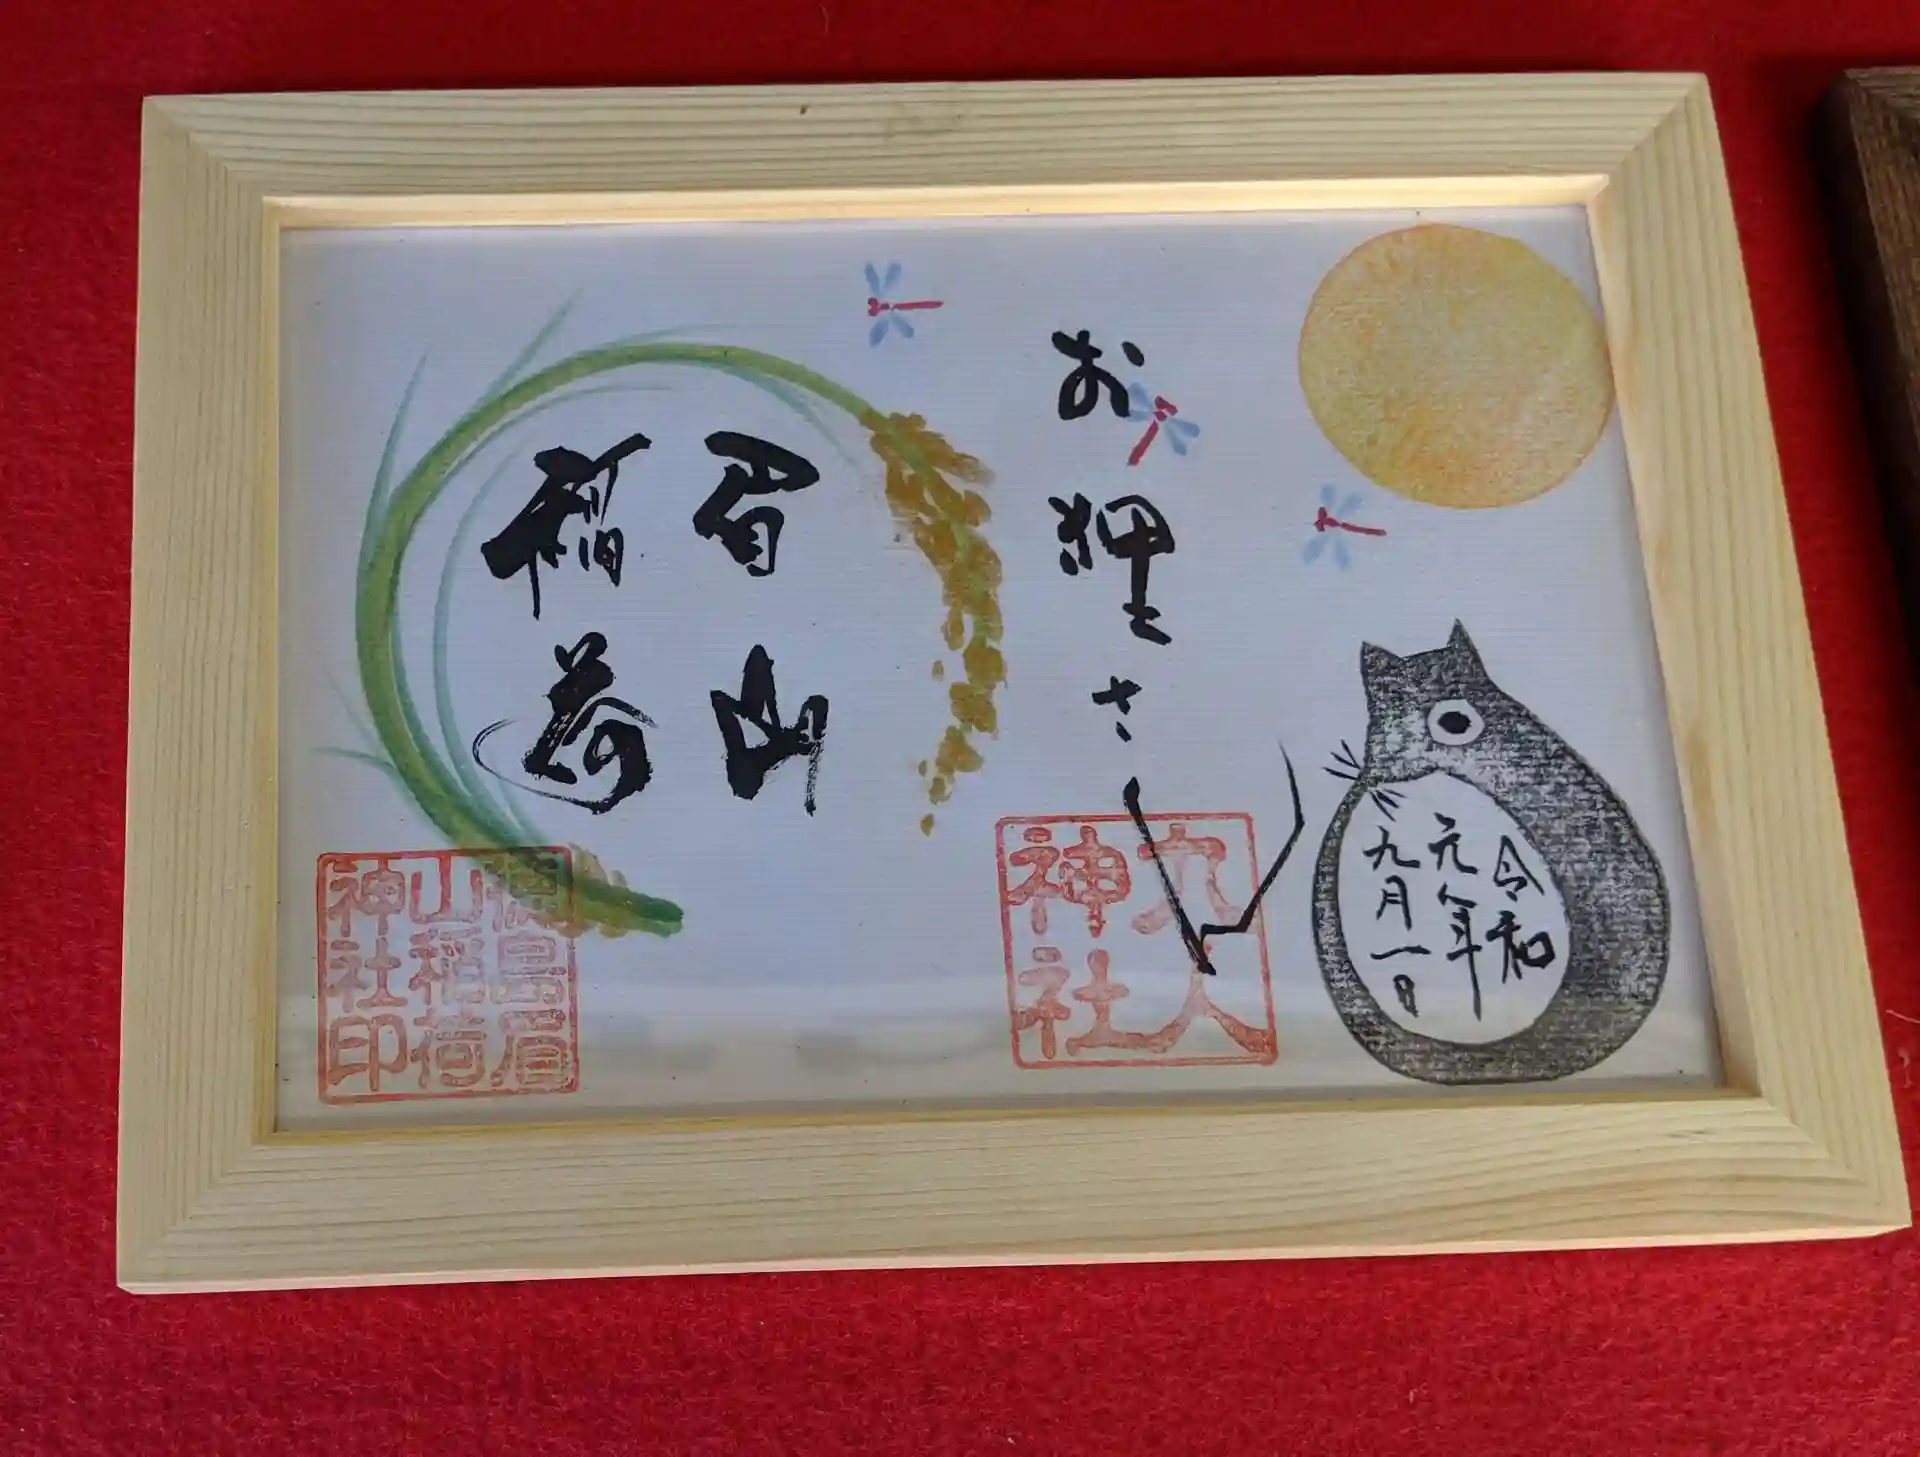 令和
元年
九月一日
お狸さん
神社
眉山
稲荷
徳島眉
山稲荷
神社印